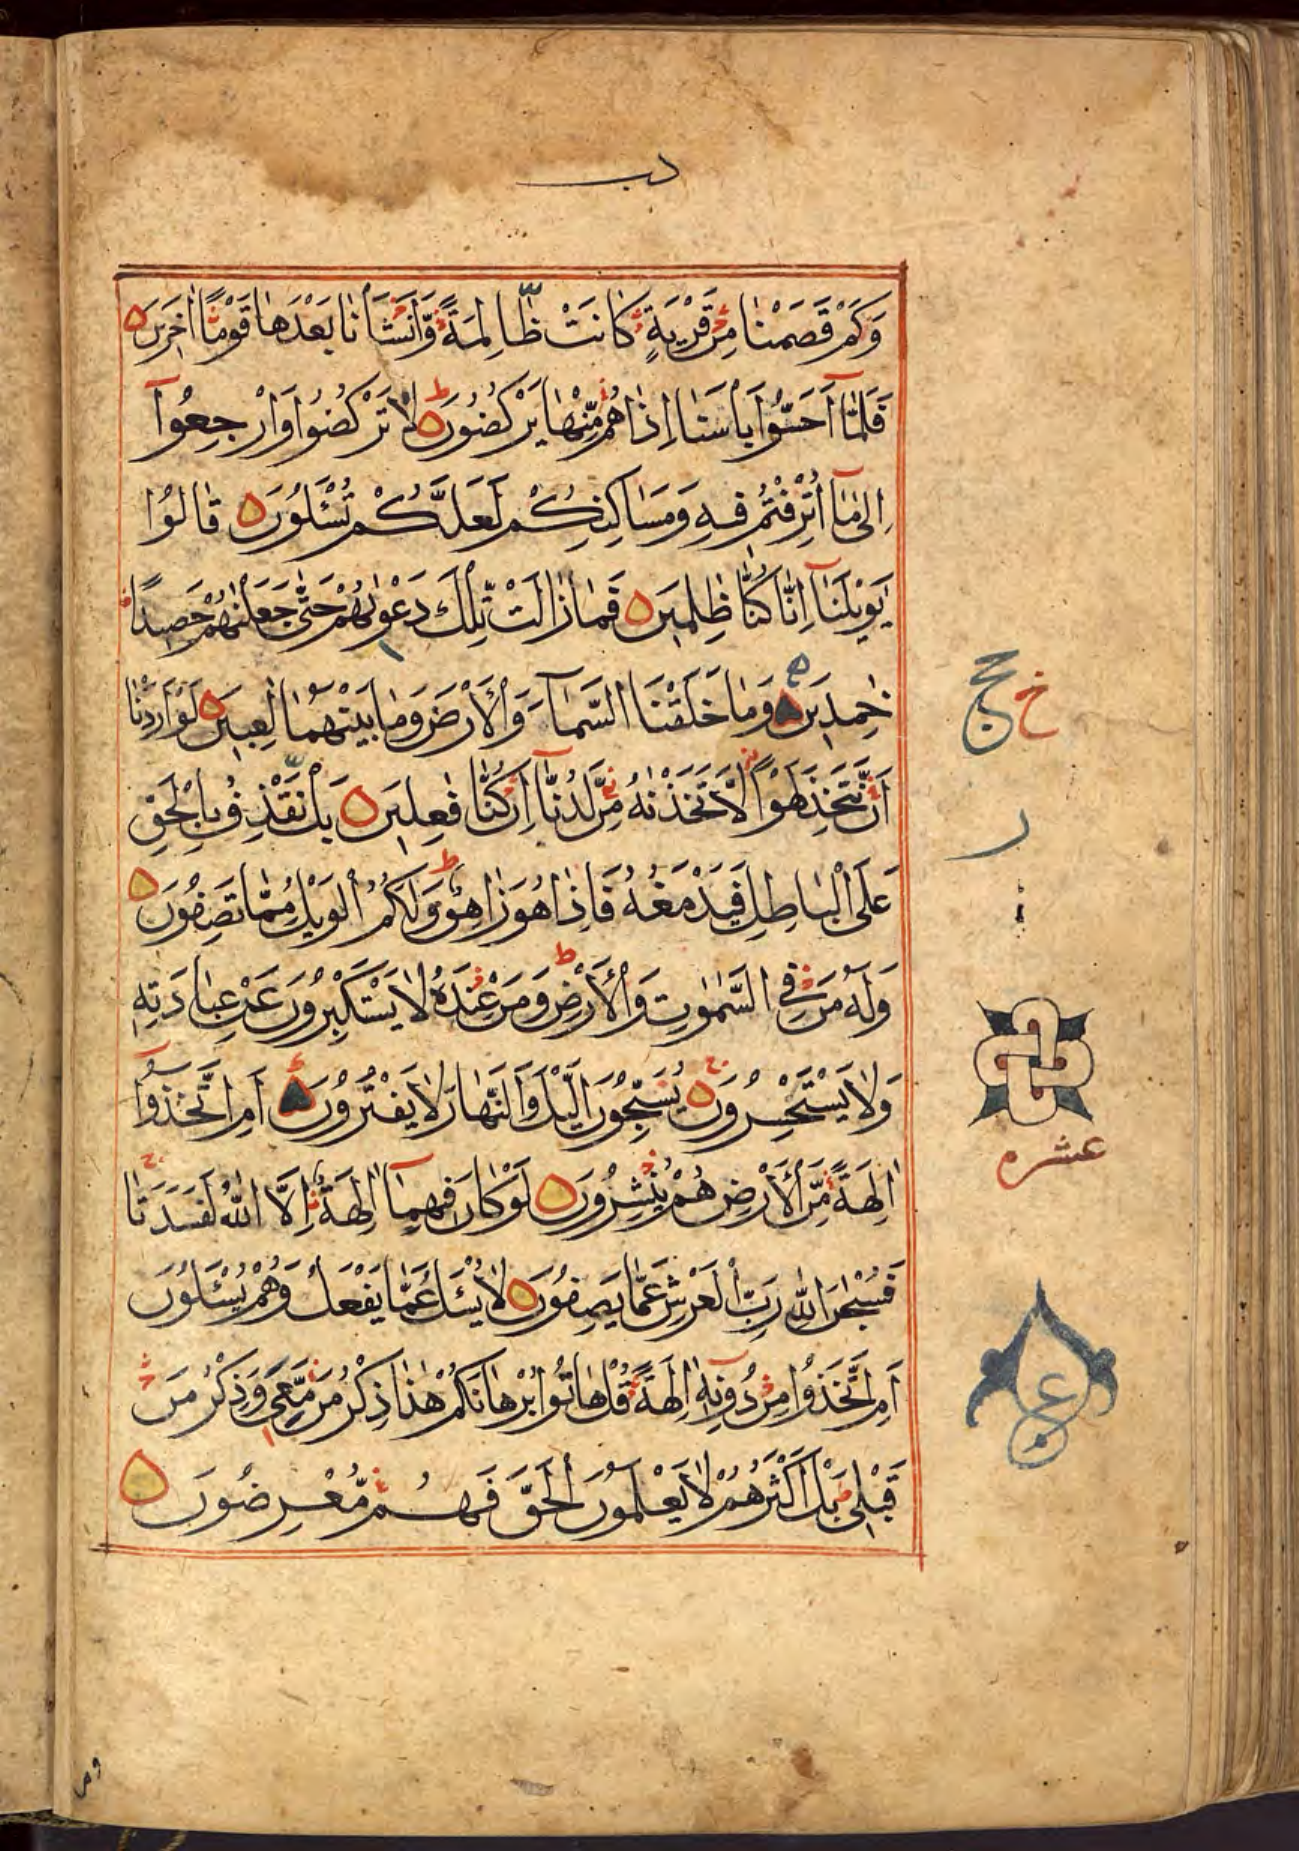 وَكَمْ قَصَمْنَا مِنْ قَرْيَةٍ كَانَتْ ظَالِمَةً وَّاَنْشَاْنَا بَعْدَهَا قَوْمًا اٰخَرِيْنَ
فَلَمَّآ اَحَسُّوْا بَاْسَنَا اِذَا هُمْ مِّنْهَا يَرْكُضُوْنَ لَا تَرْكُضُوْا وَارْجِعُوْٓا
اِلٰى مَآ اُتْرِفْتُمْ فِيْهِ وَمَسَاكِنِكُمْ لَعَلَّكُمْ تُسْئَلُوْنَ قَالُوْا
يٰوَيْلَنَآ اِنَّا كُنَّا ظٰلِمِيْنَ فَمَا زَالَتْ تِّلْكَ دَعْوٰىهُمْ حَتّٰى جَعَلْنٰهُمْ حَصِيْدًا
خٰمِدِيْنَ وَمَا خَلَقْنَا السَّمَآءَ وَالْاَرْضَ وَمَا بَيْنَهُمَا لٰعِبِيْنَ لَوْ اَرَدْنَآ
اَنْ نَّتَّخِذَ لَهْوًا لَّاتَّخَذْنٰهُ مِنْ لَّدُنَّآ اِنْ كُنَّا فٰعِلِيْنَ بَلْ نَقْذِفُ بِالْحَقِّ
عَلَى الْبَاطِلِ فَيَدْمَغُهٗ فَاِذَا هُوَ زَاهِقٌ وَلَكُمُ الْوَيْلُ مِمَّا تَصِفُوْنَ
وَلَهٗ مَنْ فِى السَّمٰوٰتِ وَالْاَرْضِ وَمَنْ عِنْدَهٗ لَا يَسْتَكْبِرُوْنَ عَنْ عِبَادَتِهٖ
وَلَا يَسْتَحْسِرُوْنَ يُسَبِّحُوْنَ الَّيْلَ وَالنَّهَارَ لَا يَفْتُرُوْنَ اَمِ اتَّخَذُوْٓا
اٰلِهَةً مِّنَ الْاَرْضِ هُمْ يُنْشِرُوْنَ لَوْ كَانَ فِيْهِمَآ اٰلِهَةٌ اِلَّا اللّٰهُ لَفَسَدَتَا
فَسُبْحٰنَ اللّٰهِ رَبِّ الْعَرْشِ عَمَّا يَصِفُوْنَ لَا يُسْئَلُ عَمَّا يَفْعَلُ وَهُمْ يُسْئَلُوْنَ
اَمِ اتَّخَذُوْا مِنْ دُوْنِهٖٓ اٰلِهَةً قُلْ هَاتُوْا بُرْهَانَكُمْ هٰذَا ذِكْرُ مَنْ مَّعِىَ وَذِكْرُ مَنْ
قَبْلِىْ بَلْ اَكْثَرُهُمْ لَا يَعْلَمُوْنَ الْحَقَّ فَهُمْ مُّعْرِضُوْنَ
عشره
ع